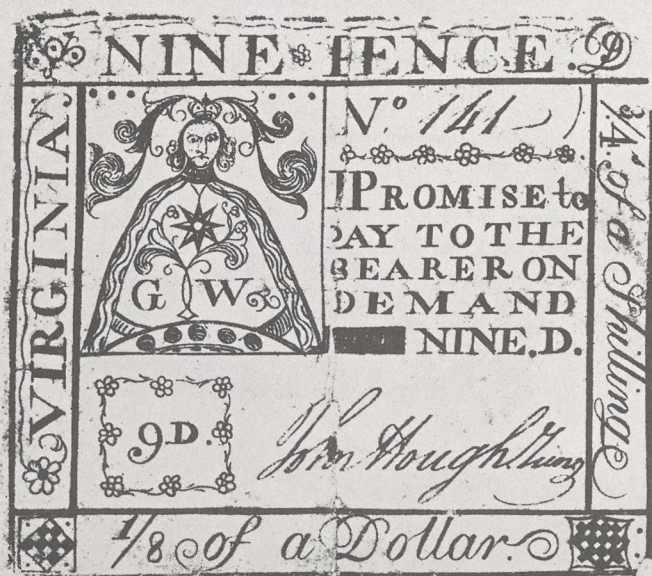 NINE PENCE. D
VIRGINIA
G W
No. 141
I PROMISE to
PAY TO THE
BEARER ON
DEMAND
NINE.D.
9D.
John Hough Jung
3/4 of a Shilling
1/8 of a Dollar.